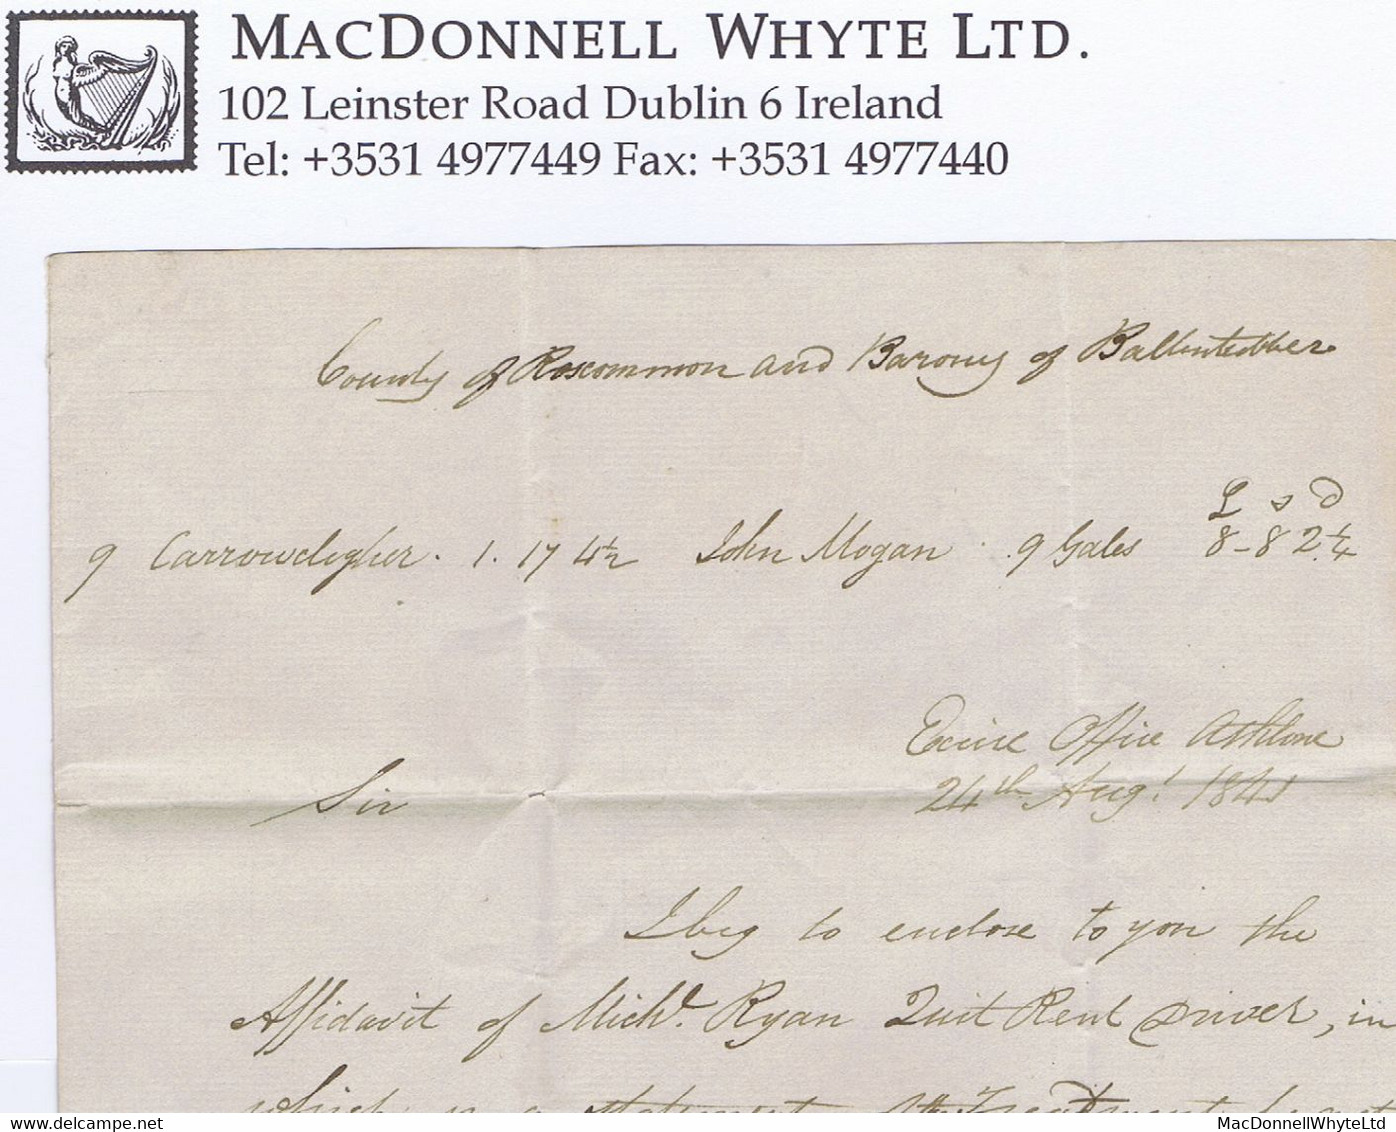 MACDONNELL WHYTE LTD.
102 Leinster Road Dublin 6 Ireland
Tel: +3531 4977449 Fax: +3531 4977440
County of Roscommon and Barony of Ballintobber
£ s d
9 Carrowclogher. 1. 17 4½ John Mogan. 9 Gales 8-8 2¼
Excise Office Athlone
24th Augt 1841
Sir
I beg to enclose to you the
Affidavit of Michl. Ryan Quit Rent Driver, in
which is a statement of the Treatment he met
MacDonnellWhyteLtd
www.delcampe.net
MacDonnellWhyteLtd